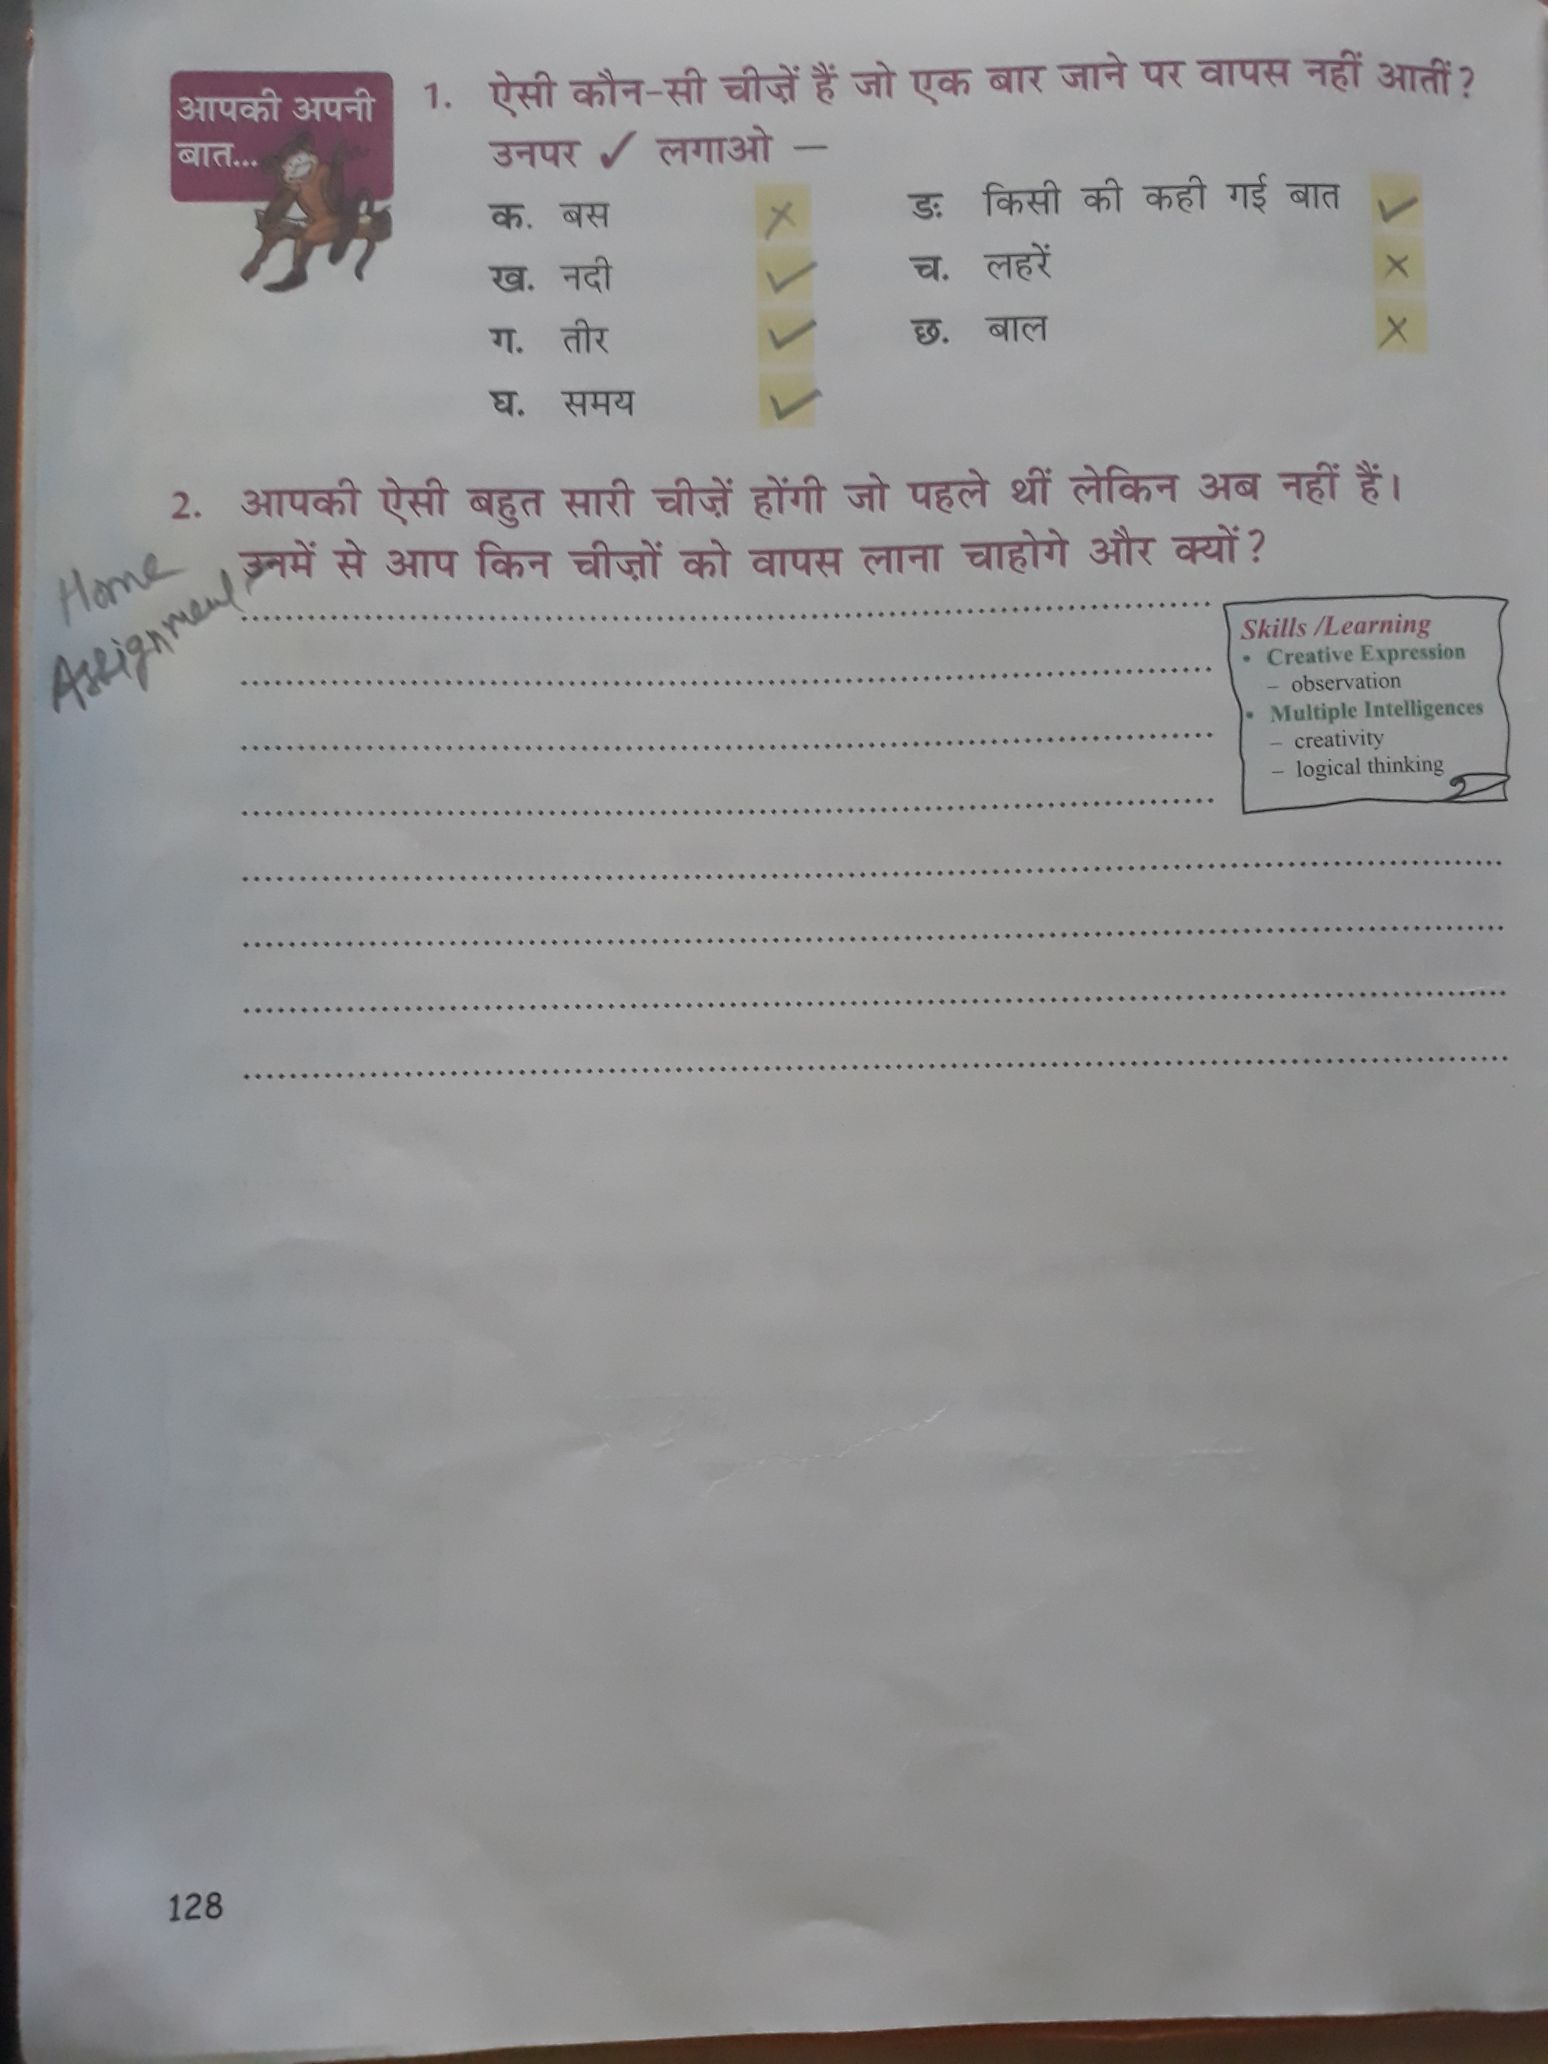 आपकी अपनी
बात...
1. ऐसी कौन-सी चीज़ें हैं जो एक बार जाने पर वापस नहीं आतीं?
उनपर ✓ लगाओ —
क. बस ✗
ख. नदी ✓
ग. तीर ✓
घ. समय ✓
ङ. किसी की कही गई बात ✓
च. लहरें ✗
छ. बाल ✗
2. आपकी ऐसी बहुत सारी चीज़ें होंगी जो पहले थीं लेकिन अब नहीं हैं।
उनमें से आप किन चीज़ों को वापस लाना चाहोगे और क्यों?
Home
Assignment
Skills /Learning
• Creative Expression
– observation
• Multiple Intelligences
– creativity
– logical thinking
128